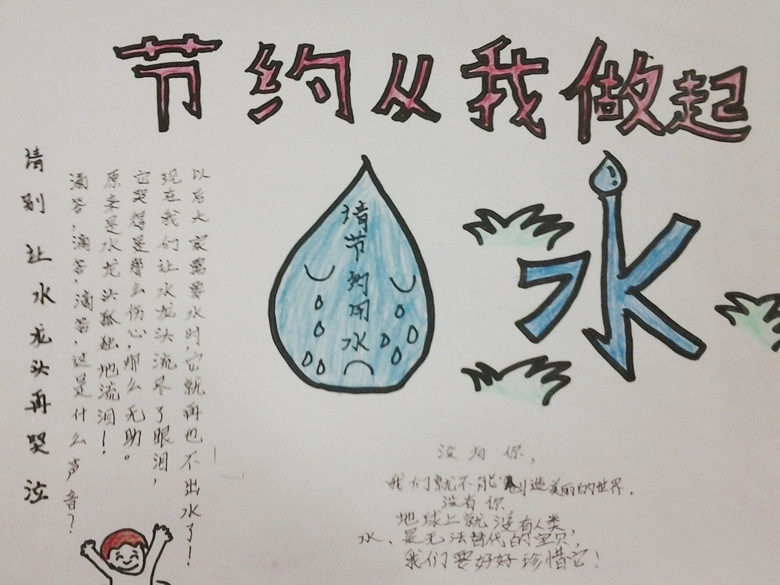 节约从我做起
请别让水龙头再哭泣
滴答,滴答,滴答,这是什么声音?
原来是水龙头孤独地流泪!
它哭得是那么伤心那么无助。
现在我们让水龙头流尽了眼泪,
以后大家需要水时它就再也不出水了!
请节约用水
水
没有你,
我们就不能创造美丽的世界.
没有你
地球上就没有人类,
水、是无法替代的宝贝,
我们要好好珍惜它!